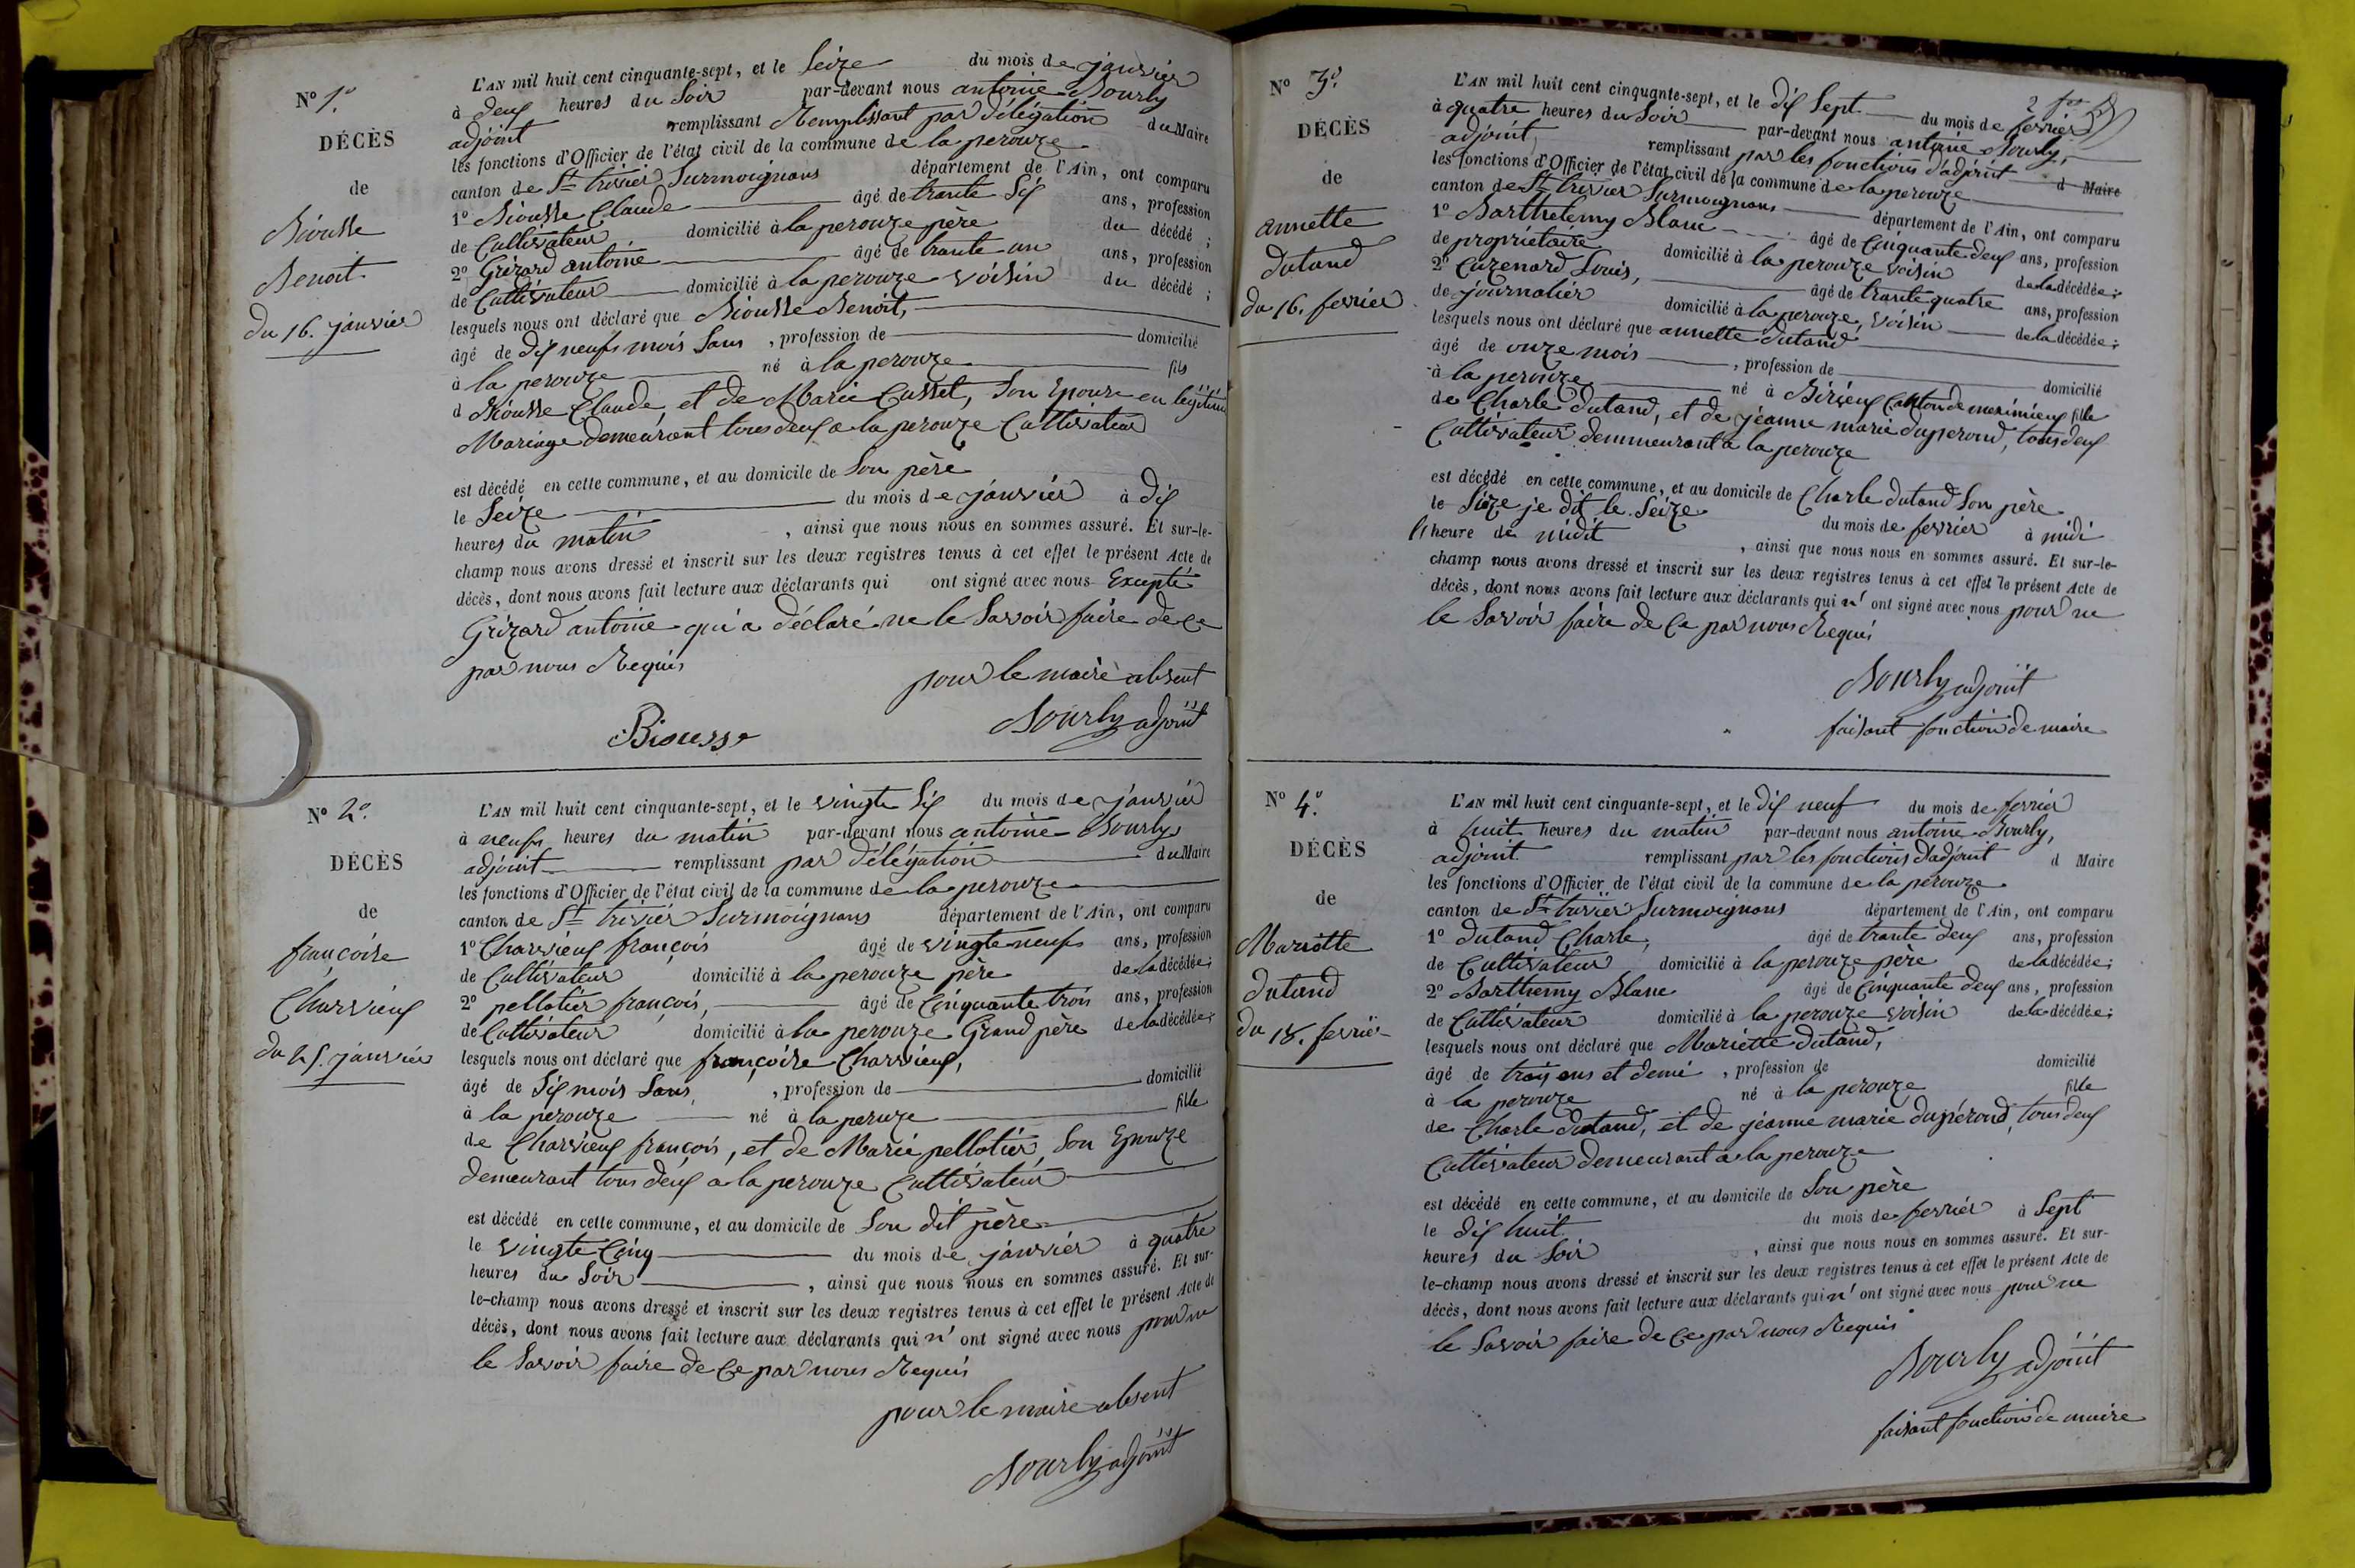 N° 1°.
DÉCÈS
de
Biousse
Benoit.
du 16. janvier
L'AN mil huit cent cinquante-sept, et le Seize du mois de janvier
à deux heures du Soir par-devant nous antoine Bourly
adjoint remplissant Remplissant par délégation du Maire
les fonctions d'Officier de l'état civil de la commune de la perouze
canton de St trivier Surmoignans département de l'Ain, ont comparu
1° Biousse Claude âgé de trante Six ans, profession
de Cultivateur domicilié à la perouze père du décédé ;
2° Grizard antoine âgé de trante un ans, profession
de Cultivateur domicilié à la perouze voisin du décédé ;
lesquels nous ont déclaré que Biousse Benoit,
âgé de dix neufs mois Sans , profession de domicilié
à la perouze né à la perouze fils
d Biousse Claude, et de Marie Cusset, Son Epouse en légitime
Mariage demeurant tous deux a la perouze Cultivateur
est décédé en cette commune, et au domicile de Son père
le Seize du mois de janvier à dix
heures du matin , ainsi que nous nous en sommes assuré. Et sur-le-
champ nous avons dressé et inscrit sur les deux registres tenus à cet effet le présent Acte de
décès, dont nous avons fait lecture aux déclarants qui ont signé avec nous Excepté
Grizard antoine qui a déclaré ne le Savoir faire de ce
par nous Requis
pour le maire absent
Biousse
Bourly adjoint
N° 2°.
DÉCÈS
de
françoise
Charvieux
du 25. janvier
L'AN mil huit cent cinquante-sept, et le vingte Six du mois de janvier
à neufs heures du matin par-devant nous antoine Bourly
adjoint remplissant par délégation du Maire
les fonctions d'Officier de l'état civil de la commune de la perouze
canton de St trivier Surmoignans département de l'Ain, ont comparu
1° Charvieux françois âgé de vingte neufs ans, profession
de Cultivateur domicilié à la perouze père de la décédée ;
2° pellotier françois, âgé de Cinquante trois ans, profession
de Cultivateur domicilié à la perouze Grand père de la décédée ;
lesquels nous ont déclaré que françoise Charvieux,
âgé de Six mois Sans, , profession de domicilié
à la perouze né à la peruze fille
de Charvieux françois, et de Marie pellotier, Son Epouze
demeurant tous deux a la perouze Cultivateur
est décédé en cette commune, et au domicile de Son dit père
le vingte Cinq du mois de janvier à quatre
heures du Soir , ainsi que nous nous en sommes assuré. Et sur-
le-champ nous avons dressé et inscrit sur les deux registres tenus à cet effet le présent Acte de
décès, dont nous avons fait lecture aux déclarants qui n' ont signé avec nous pour ne
le Savoir faire de Ce par nous Requis
pour le maire absent
Bourly adjoint
N° 3°.
DÉCÈS
de
annette
dutand
du 16. fevrier
L'AN mil huit cent cinquante-sept, et le dix Sept du mois de fevrier
à quatre heures du Soir par-devant nous antoine Bourly,
adjoint remplissant par les fonctions d'adjoint d Maire
les fonctions d'Officier de l'état civil de la commune de la perouze
canton de St trivier Surmoignans département de l'Ain, ont comparu
1° Barthelemy Blanc âgé de Cinquante deux ans, profession
de propriétaire domicilié à la perouze voisin de la décédée ;
2° Cuzenard Louis, âgé de trante quatre ans, profession
de journalier domicilié à la perouze, voisin de la décédée ;
lesquels nous ont déclaré que annette dutand
âgé de onze mois , profession de domicilié
à la perouze né à Birieux Canton de meximieux fille
de Charle dutand, et de jeanne marie duperond, tous deux
Cultivateur demmeurant a la perouze
est décédé en cette commune, et au domicile de Charle dutand Son père
le Sieze je dit le Seize du mois de fevrier à midi
heure de midit , ainsi que nous nous en sommes assuré. Et sur-le-
champ nous avons dressé et inscrit sur les deux registres tenus à cet effet le présent Acte de
décès, dont nous avons fait lecture aux déclarants qui n' ont signé avec nous pour ne
le Savoir faire de Ce par nous Requis
Bourly adjoint
faisant fonction de maire
N° 4°.
DÉCÈS
de
Mariette
dutand
du 18. fevrier
L'AN mil huit cent cinquante-sept, et le dix neuf du mois de fevrier
à huit heures du matin par-devant nous antoine Bourly,
adjoint remplissant par les fonctions d'adjoint d Maire
les fonctions d'Officier de l'état civil de la commune de la perouze
canton de St trivier Surmoignans département de l'Ain, ont comparu
1° dutand Charle, âgé de trante deux ans, profession
de Cultivateur domicilié à la perouze père de la décédée ;
2° Barthemy Blanc âgé de Cinquante deux ans, profession
de Cultivateur domicilié à la perouze voisin de la décédée ;
lesquels nous ont déclaré que Mariette dutand,
âgé de trois ans et demi , profession de domicilié
à la perouze né à la perouze fille
de Charle dutand, et de jeanne marie dupérond, tous deux
Cultivateur demeurant a la perouze
est décédé en cette commune, et au domicile de Son père
le dix huit du mois de fevrier à Sept
heures du Soir , ainsi que nous nous en sommes assuré. Et sur-
le-champ nous avons dressé et inscrit sur les deux registres tenus à cet effet le présent Acte de
décès, dont nous avons fait lecture aux déclarants qui n' ont signé avec nous pour ne
le Savoir faire de Ce par nous Requis
Bourly adjoint
faisant fonction de maire